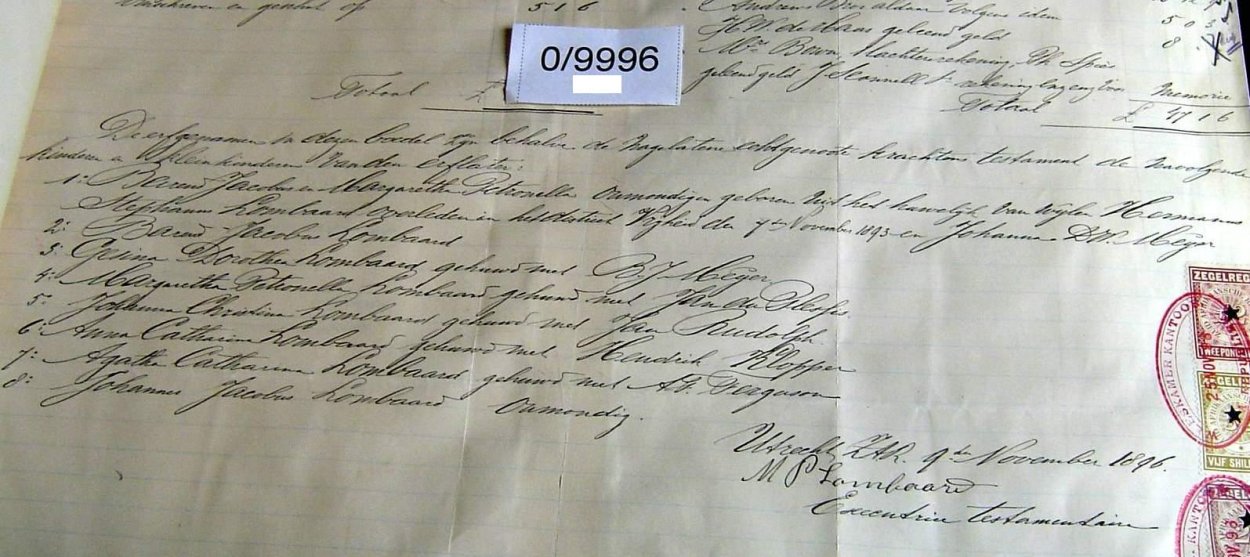 en gestort op 5 1 6
Andries volgens idem
H.W. de Haas geleend geld 5 0
Mrs Bown 8
geleend geld Memorie
0/9996
Totaal £
Totaal £ 77 1 6
De erfgenamen in dezen boedel zijn behalve de nagelatene echtgenoote krachtens testament de navolgende
kinderen en kleinkinderen van den erflater:
1: Barend Jacobus en Margaretha Petronella onmondigen geboren uit het huwelijk van wijlen Hermanus
Stephanus Lombaard overleden in het district Vrijheid den 7de November 1893 en Johanna Meijer
2: Barend Jacobus Lombaard
3: Gesina Dorothea Lombaard gehuwd met B.J. Meijer
4: Margaretha Petronella Lombaard gehuwd met Jan du Plessis
5: Johanna Christina Lombaard gehuwd met Jan Rudolph
6: Anna Catharina Lombaard gehuwd met Hendrik Klopper
7: Agatha Catharina Lombaard gehuwd met Ferguson
8: Johannes Jacobus Lombaard onmondig.
Utrecht Z.A.R. 9de November 1896.
M P Lombaard
Executrice testamentaire
ZEGELREC
KANTOOR
TWEE POND
VIJF SHIL